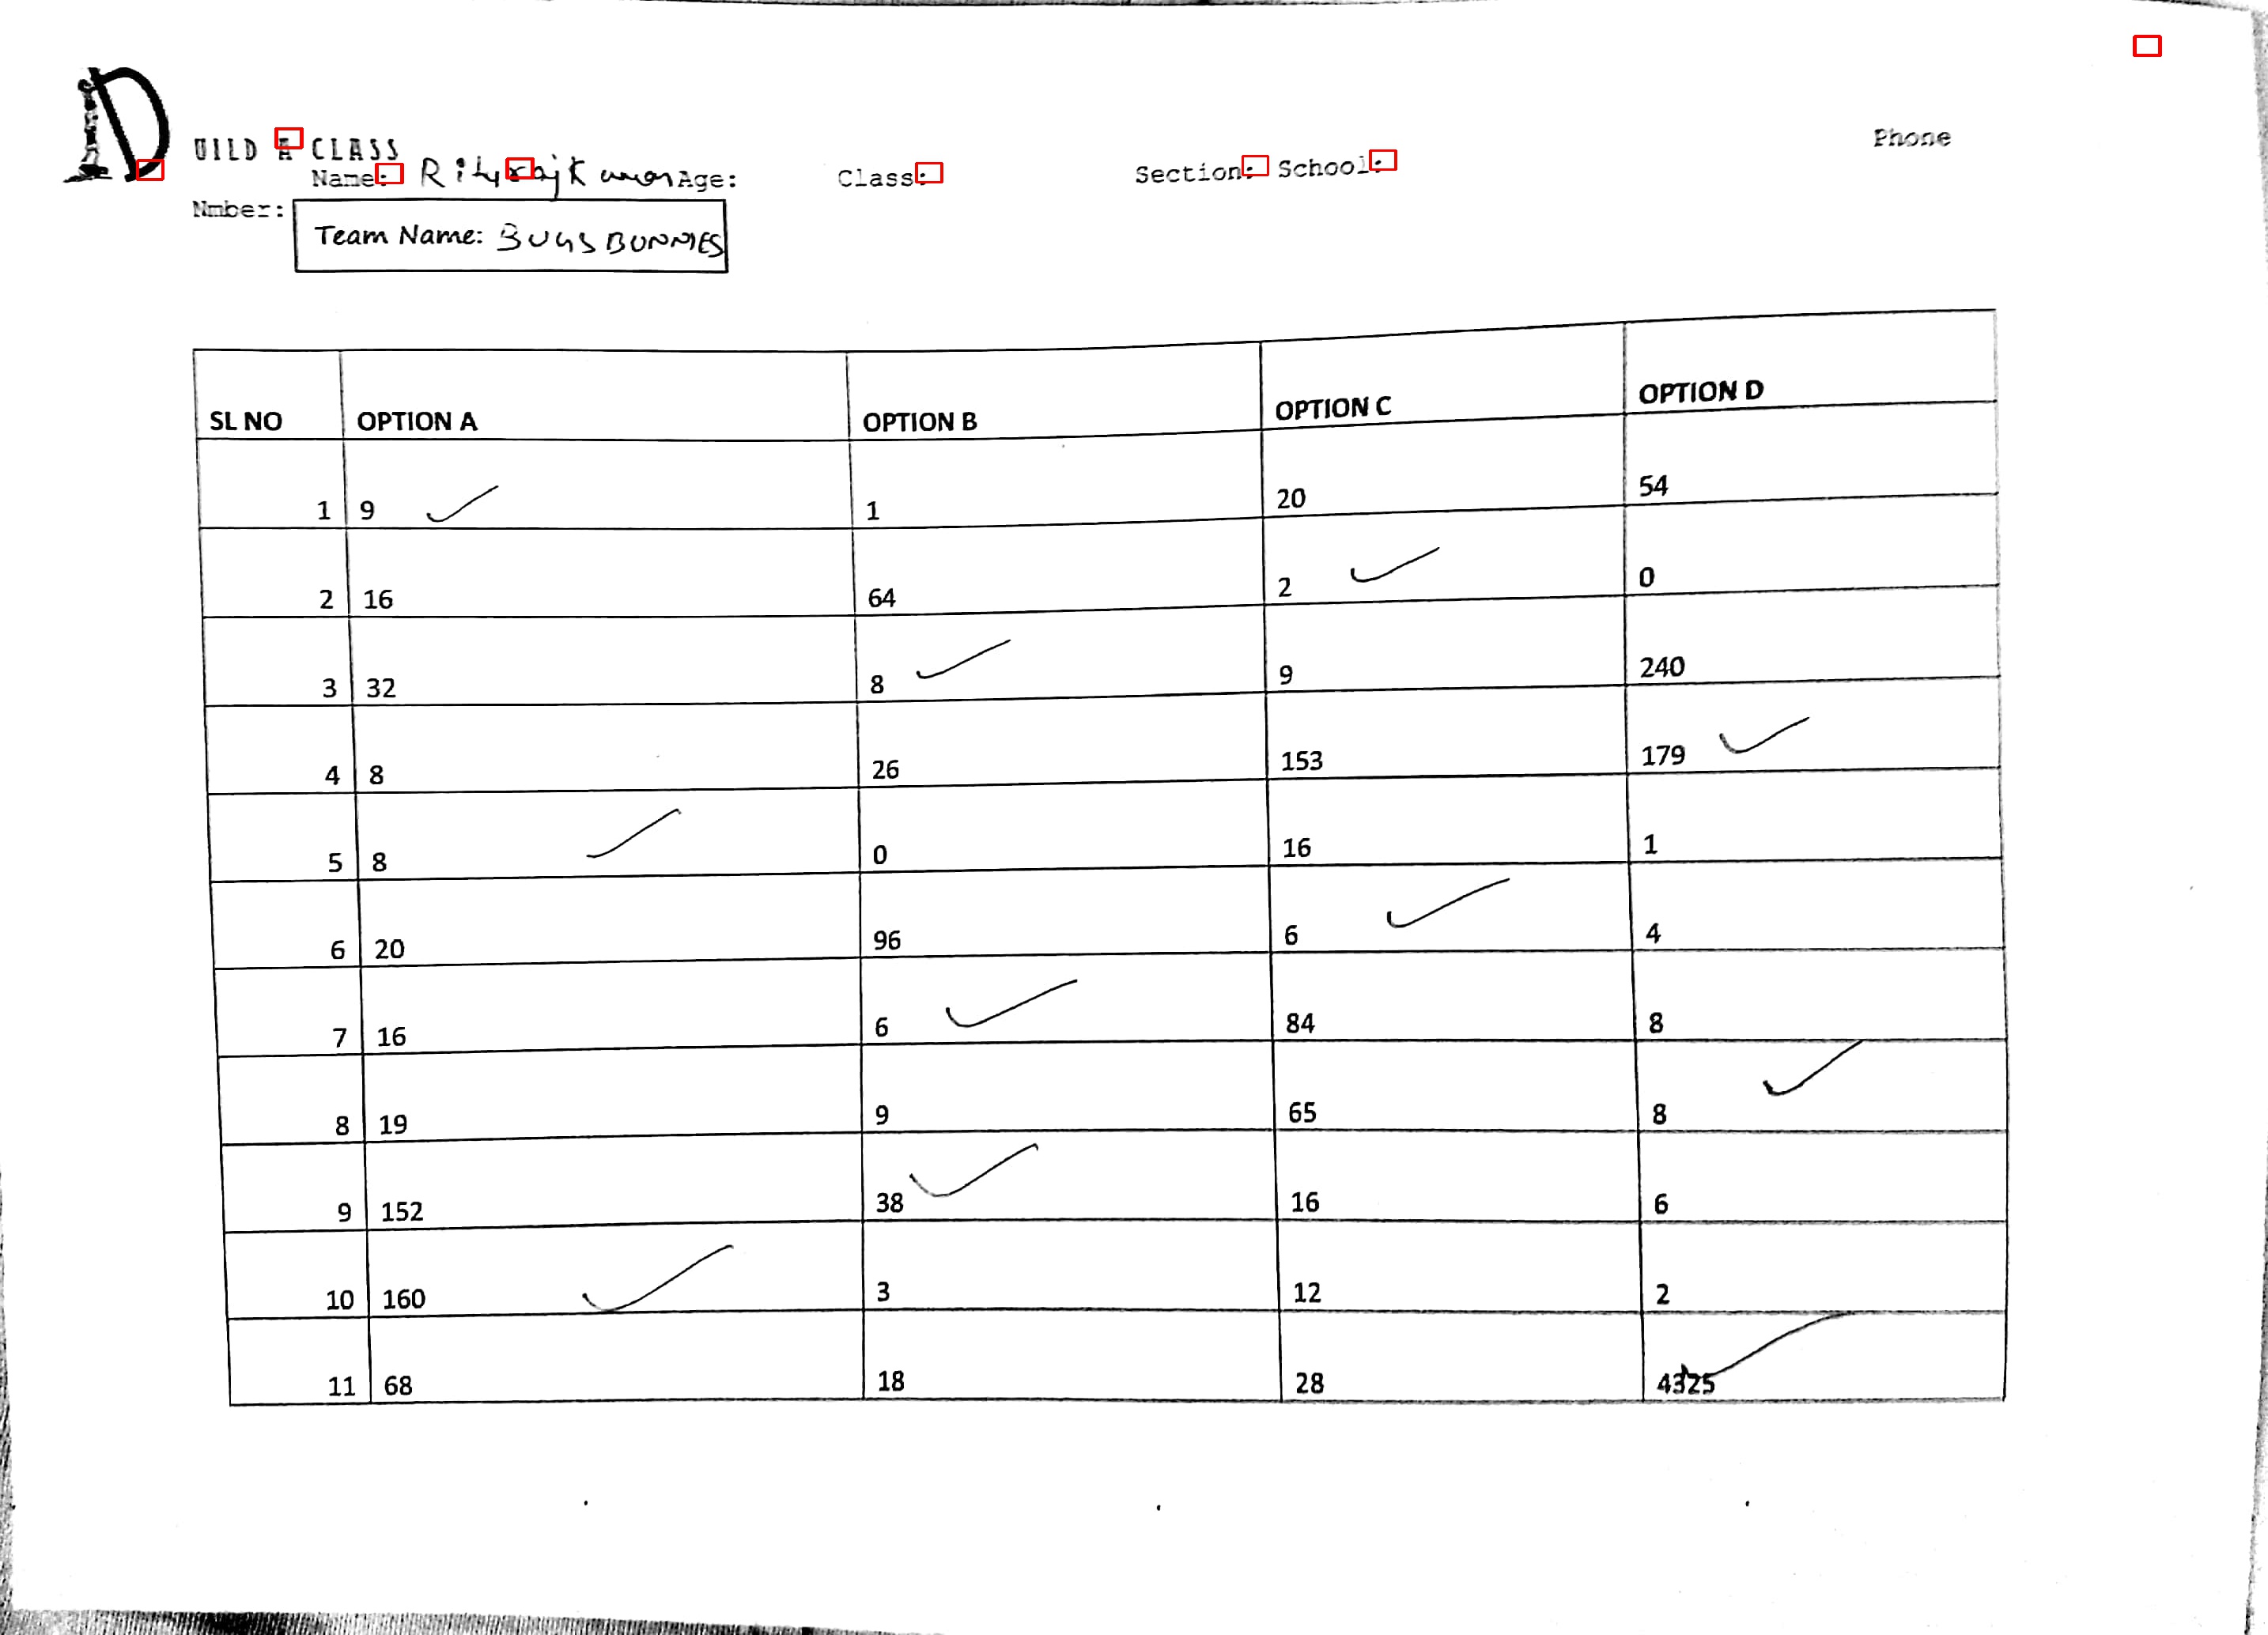 UILD A CLASS
Name: Rituraj Kumar Age: Class: Section: School: Phone
Nmber:
Team Name: BUGS BUNNIES
SL NO OPTION A OPTION B OPTION C OPTION D
1 9 ✓ 1 20 54
2 16 64 2 ✓ 0
3 32 8 ✓ 9 240
4 8 26 153 179 ✓
5 8 ✓ 0 16 1
6 20 96 6 ✓ 4
7 16 6 ✓ 84 8
8 19 9 65 8 ✓
9 152 38 ✓ 16 6
10 160 ✓ 3 12 2
11 68 18 28 4325 ✓